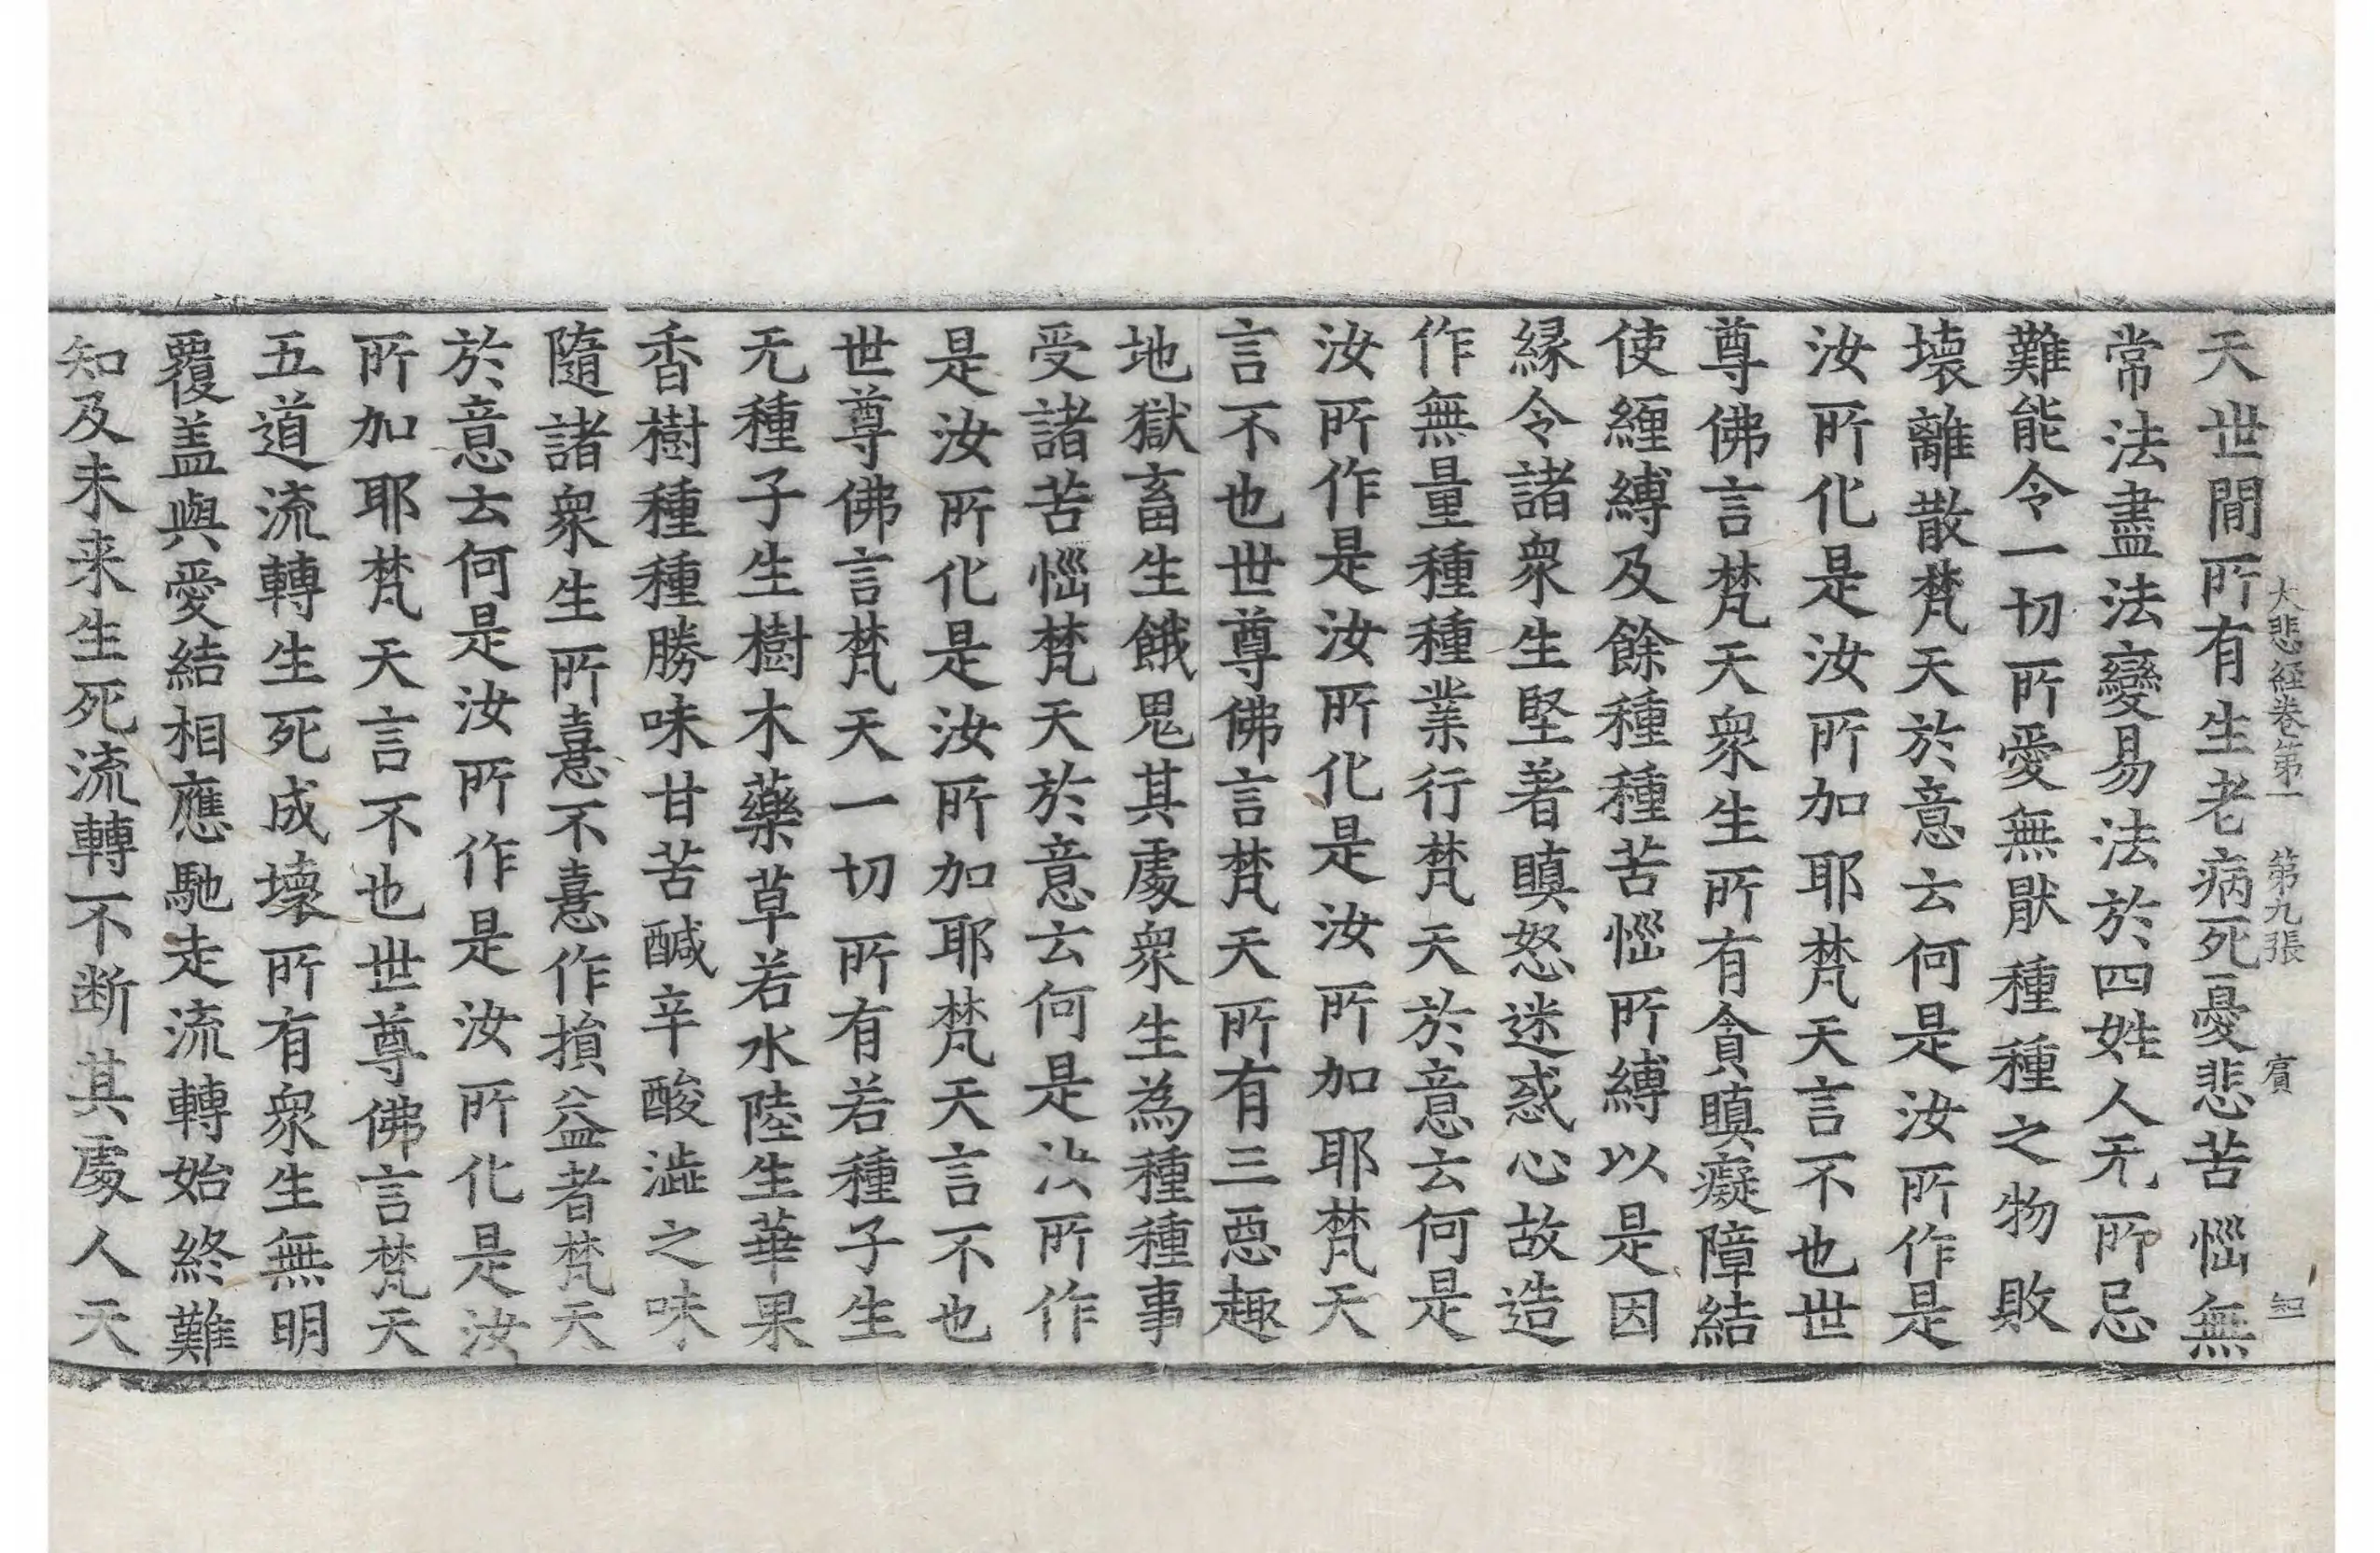 大悲経卷第一　第九張　賔　知
天世間所有生老病死憂悲苦惱無
常法盡法變易法於四姓人无所忌
難能令一切所愛無猒種種之物敗
壞離散梵天於意云何是汝所作是
汝所化是汝所加耶梵天言不也世
尊佛言梵天衆生所有貪瞋癡障結
使纏縛及餘種種苦惱所縛以是因
縁令諸衆生堅著瞋怒迷惑心故造
作無量種種業行梵天於意云何是
汝所作是汝所化是汝所加耶梵天
言不也世尊佛言梵天所有三惡趣
地獄畜生餓鬼其處衆生為種種事
受諸苦惱梵天於意云何是汝所作
是汝所化是汝所加耶梵天言不也
世尊佛言梵天一切所有若種子生
无種子生樹木藥草若水陸生華果
香樹種種勝味甘苦醎辛酸澁之味
隨諸衆生所憙不憙作損益者梵天
於意云何是汝所作是汝所化是汝
所加耶梵天言不也世尊佛言梵天
五道流轉生死成壞所有衆生無明
覆盖與愛結相應馳走流轉始終難
知及未来生死流轉不断其處人天